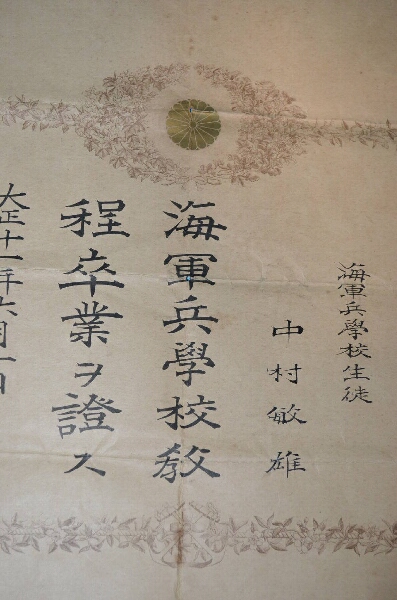 海軍兵學校生徒
中村敏雄
海軍兵學校教
程卒業ヲ證ス
大正十一年六月一日